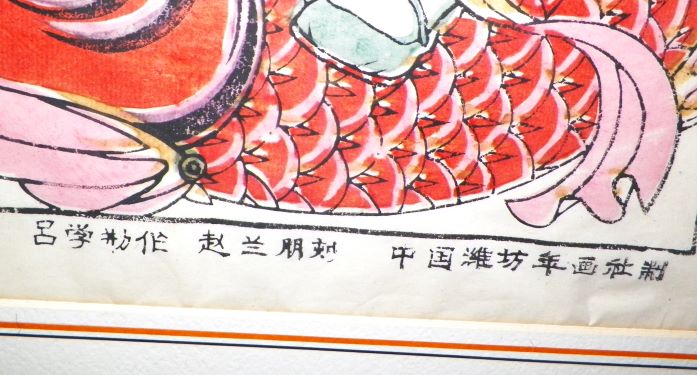 吕学勤作 赵兰朋刻 中国潍坊年画社制